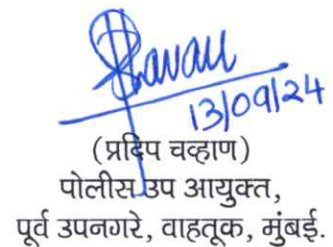 13/09/24
(प्रदिप चव्हाण)
पोलीस उप आयुक्त,
पूर्व उपनगरे, वाहतूक, मुंबई.